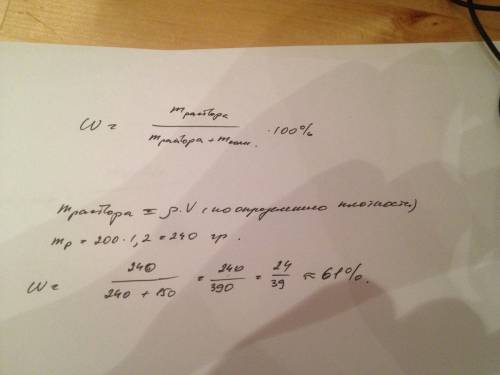 ω = m раствора / (m раствора + m соли) · 100%
m раствора = ρ·V (по определению плотности)
mр = 200·1,2 = 240 гр.
ω = 240 / (240 + 150) = 240 / 390 = 24 / 39 ≈ 61%.